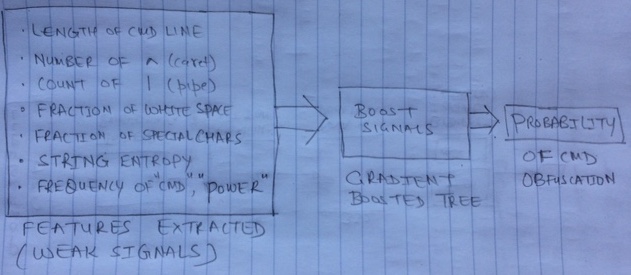 · LENGTH OF CMD LINE
· NUMBER OF ^ (caret)
· COUNT OF | (pipe)
· FRACTION OF WHITE SPACE
· FRACTION OF SPECIAL CHARS
· STRING ENTROPY
· FREQUENCY OF "CMD", "POWER"
FEATURES EXTRACTED
(WEAK SIGNALS)
BOOST
SIGNALS
GRADIENT
BOOSTED TREE
PROBABILITY
OF CMD
OBFUSCATION